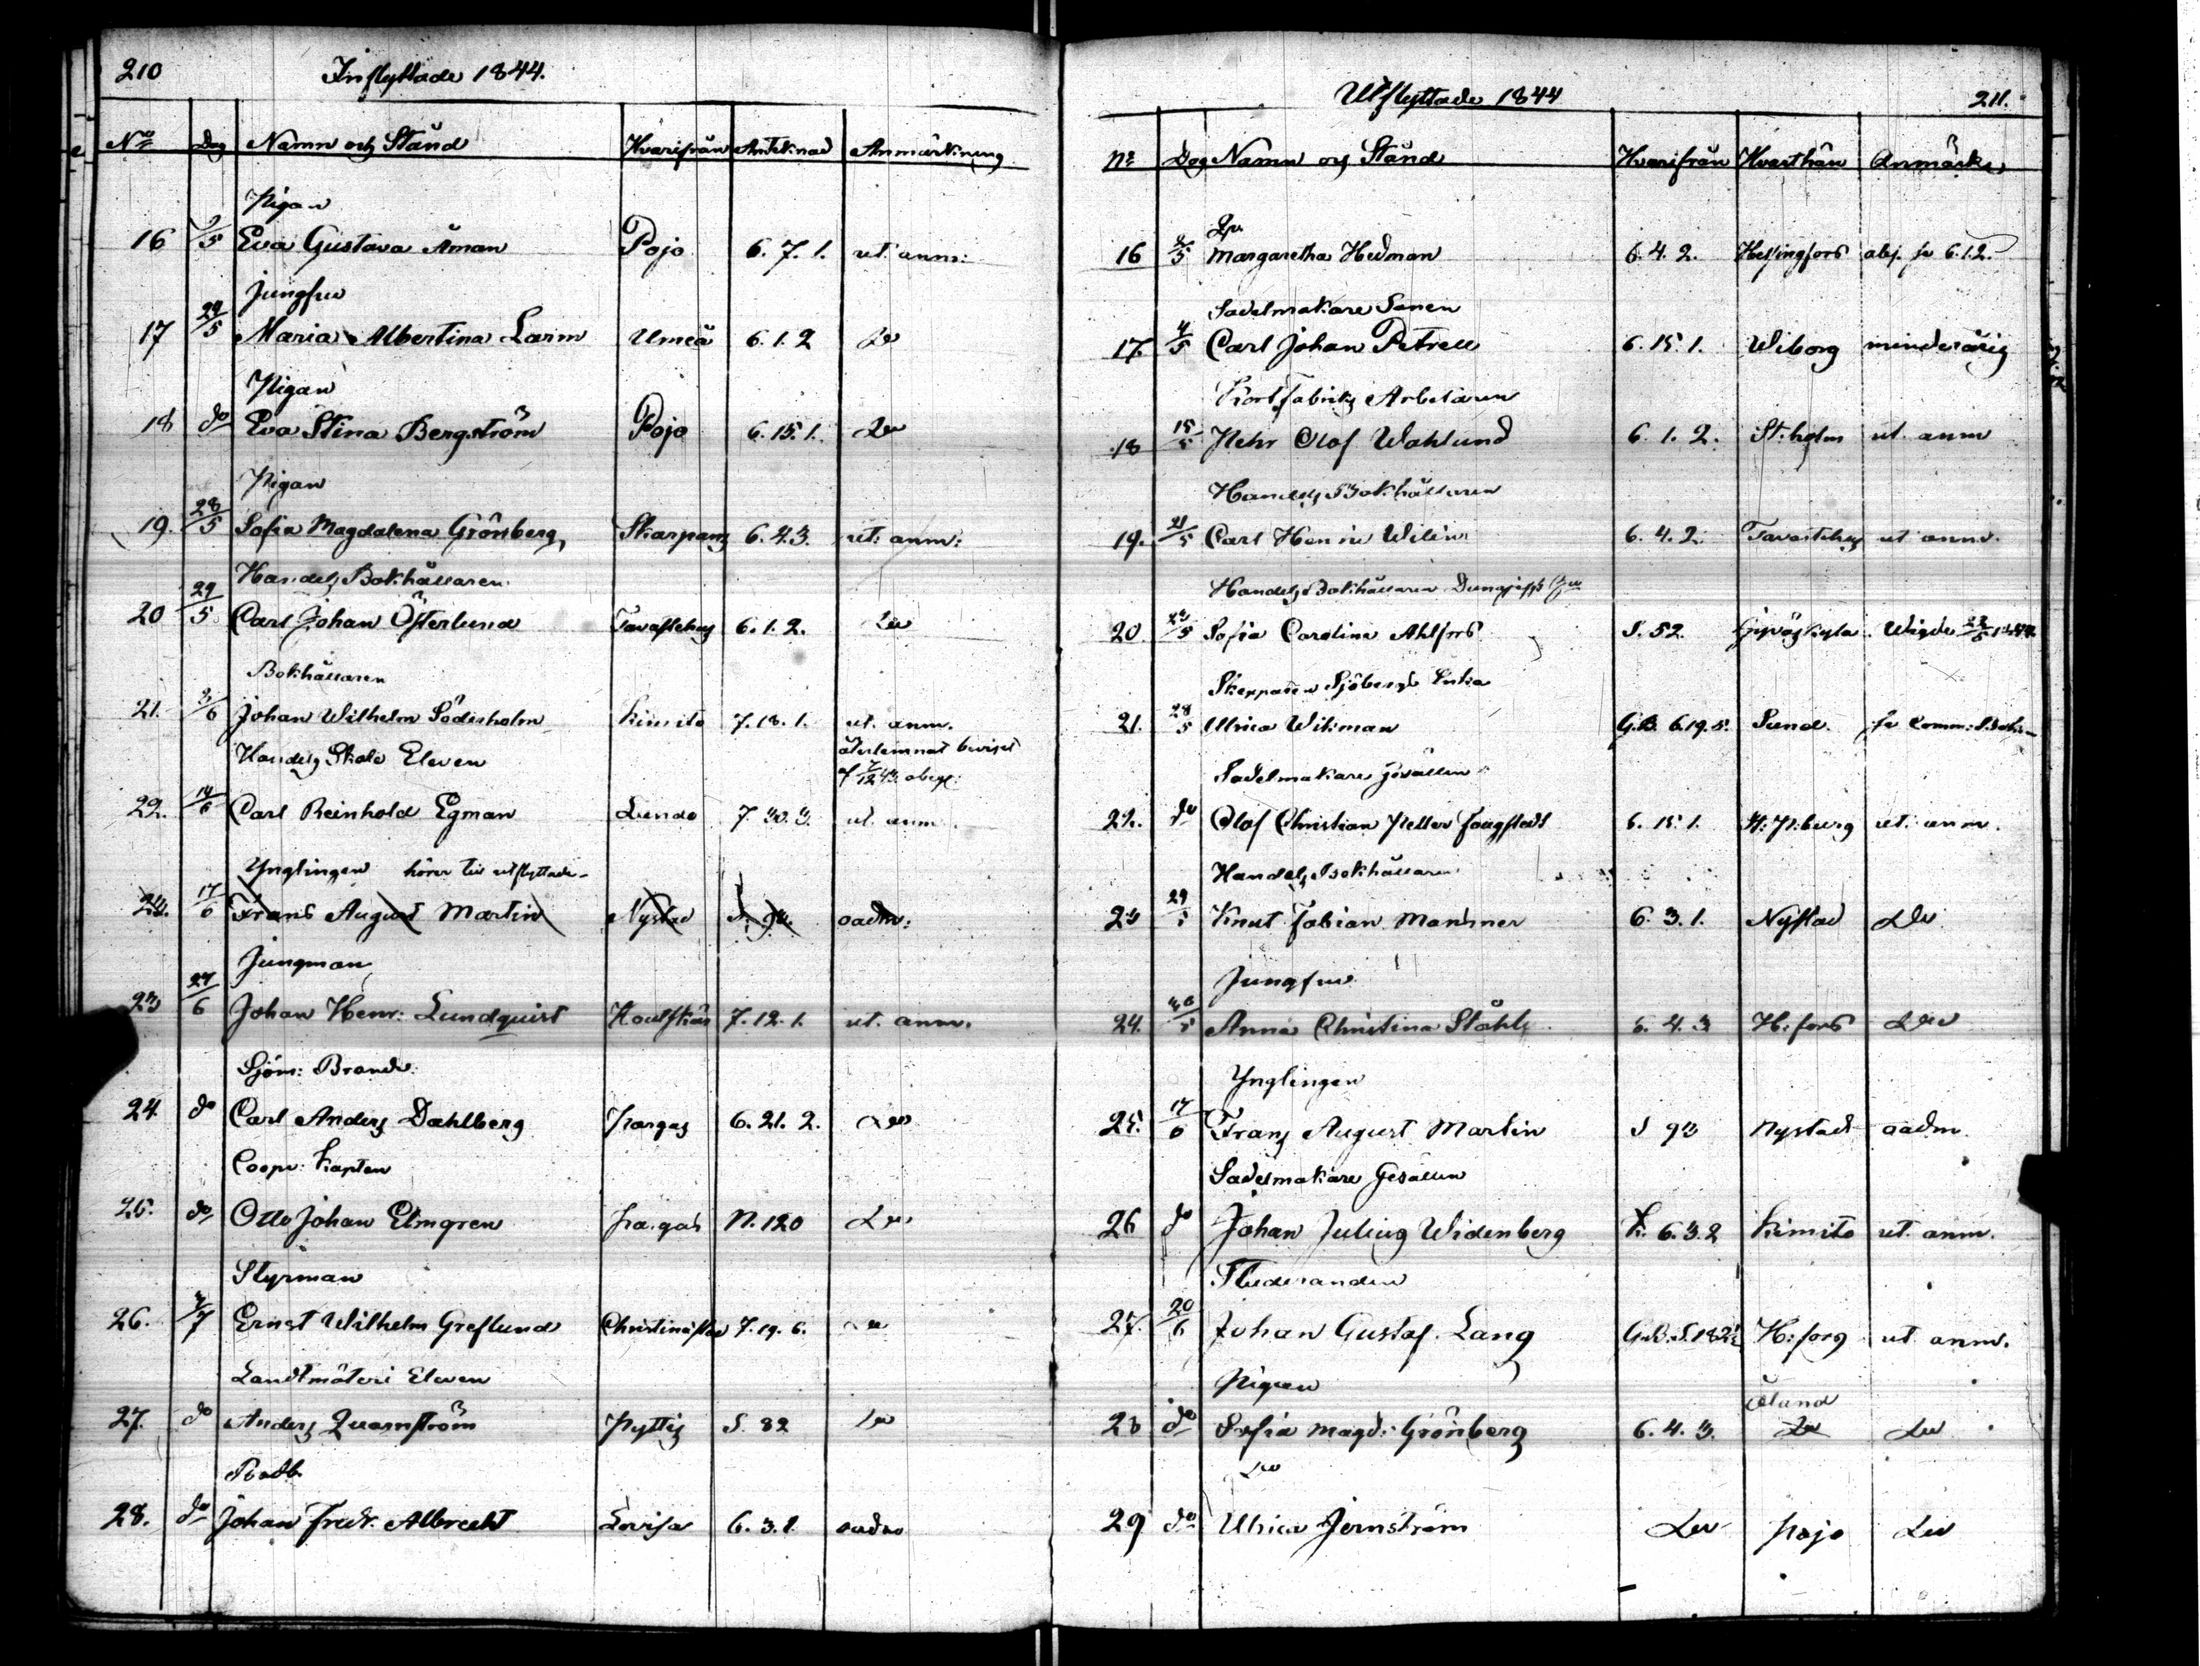 210 Inflyttade 1844.
No Dag Namn och Stånd Hvarifrån Anteknad Anmärkning
Pigan
16 5 Eva Gustava Åman Pojo 6. 7. 1. ut. anm:
Jungfru
17 29/5 Maria Albertina Larm Umeå 6. 1. 2 Do
Pigan
18 do Eva Stina Bergström Pojo 6. 15. 1. Do
Pigan
19. 28/5 Sofia Magdalena Grönberg Skarpans 6. 4.3. ut: anm:
Handels Bokhållaren
20 29/5 Carl Johan Österlund Tavastehus 6. 1. 2. Do
Bokhållaren
21. 3/6 Johan Wilhelm Söderholm Kimito 7. 18. 1. ut. anm.
Handels Skole Eleven återlemnat beviset
af 12 43
22. 14/6 Carl Reinhold Egman Lundo 7. 30. 3. ut. anm.
Ynglingen hörer till utflyttade
17/6 Frans August Martin Nystad oadm:
Jungman
23 27/6 Johan Henr: Lundquist Houtskär 7. 12. 1. ut. anm.
Sjöm: Brand:
24. do Carl Anders Dahlberg Pargas 6. 21. 2. Do
Coopv: Kapten
25. do Otto Johan Elmgren Pargas N. 120 Do
Styrman
26. 3/7 Ernst Wilhelm Greflund Christinestad 7. 19. 6. Do
Landtmäteri Eleven
27. do Anders Quarnström Pyttis S. 82 Do
Badb.
28. do Johan Fredr. Albrecht Lovisa 6. 3. 1. oadm
Utflyttade 1844 211.
No Dag Namn och Stånd Hvarifrån Hvarthän Anmärkn
16 5 Margaretha Hedman 6. 4. 2. Helsingfors abs. fr 6.1.2.
Sadelmakare Sonen
17. 4/5 Carl Johan Petrell 6. 15. 1. Wiborg minderårig
Kort fabriks Arbetaren
18 15/5 Pehr Olof Wahlund 6. 1. 2. St:holm ut. anm
Handels Bokhållaren
19. 21/5 Carl Henric Wilin 6. 4. 2. Tavastehus ut anm.
Handels Bokhållaren
20 5 Sofia Carolina Ahlfors S. 52. Wigde
Skepparen Sjöbergs Enka
21. 28/5 Ulrica Wikman G.B. 6.19.5. Sund. fr Comm: Boken
Sadelmakare Gesällen
22. do Olof Christian Petter 6. 15. 1. St: P:burg ut. anm.
Handels Bokhållaren
23 29/5 Knut Fabian 6. 3. 1. Nystad Do
Jungfru
24. 5 Anna Christina Ståhl 6. 4. 3 H:fors Do
Ynglingen
25. 17/6 Frans August Martin S 93 Nystad oadm.
Sadelmakare Gesällen
26 do Johan Julius Widenberg 6. 3. 2 Kimito ut. anm.
Studeranden
27. 20/6 Johan Gustaf Lang G.B. S. 182 H:fors ut anm.
Pigan Åland
28 do Sofia Magd: Grönberg 6. 4. 3. Do Do
Do
29 do Ulrica Jernström Do Pojo Do